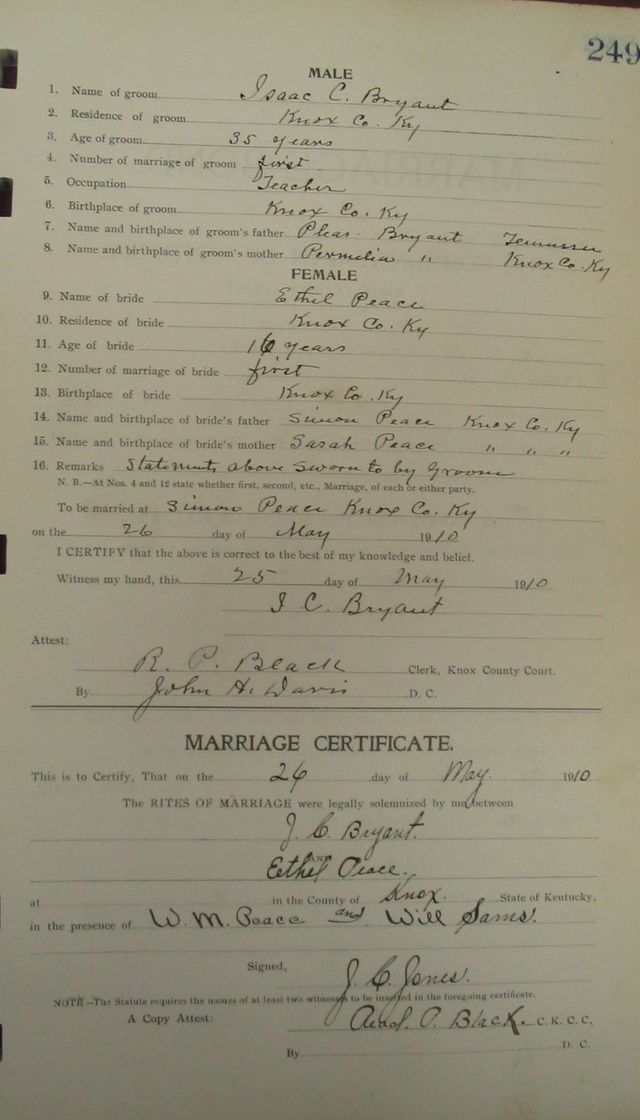 249
MALE
1. Name of groom Isaac C. Bryant
2. Residence of groom Knox Co. Ky
3. Age of groom 35 years
4. Number of marriage of groom first
5. Occupation Teacher
6. Birthplace of groom Knox Co. Ky
7. Name and birthplace of groom's father Pleas. Bryant Tennessee
8. Name and birthplace of groom's mother Permelia " Knox Co. Ky
FEMALE
9. Name of bride Ethel Peace
10. Residence of bride Knox Co. Ky
11. Age of bride 16 years
12. Number of marriage of bride first
13. Birthplace of bride Knox Co. Ky
14. Name and birthplace of bride's father Simon Peace Knox Co. Ky
15. Name and birthplace of bride's mother Sarah Peace " " "
16. Remarks Statements above sworn to by Groom
N. B.—At Nos. 4 and 12 state whether first, second, etc., Marriage, of each or either party.
To be married at Simon Peace Knox Co. Ky
on the 26 day of May 1910
I CERTIFY that the above is correct to the best of my knowledge and belief.
Witness my hand, this 25 day of May 1910
I C. Bryant
Attest:
R. P. Black Clerk, Knox County Court.
By John H. Davis D. C.
MARRIAGE CERTIFICATE.
This is to Certify, That on the 26 day of May. 1910
The RITES OF MARRIAGE were legally solemnized by me between
J. C. Bryant.
AND
Eethel Peace.
at in the County of Knox. State of Kentucky,
in the presence of W. M. Peace and Will Sams.
Signed, J. C. Jones.
NOTE—The Statute requires the names of at least two witnesses to be inserted in the foregoing certificate.
A Copy Attest: P. Black. C. K. C. C,
By D. C.